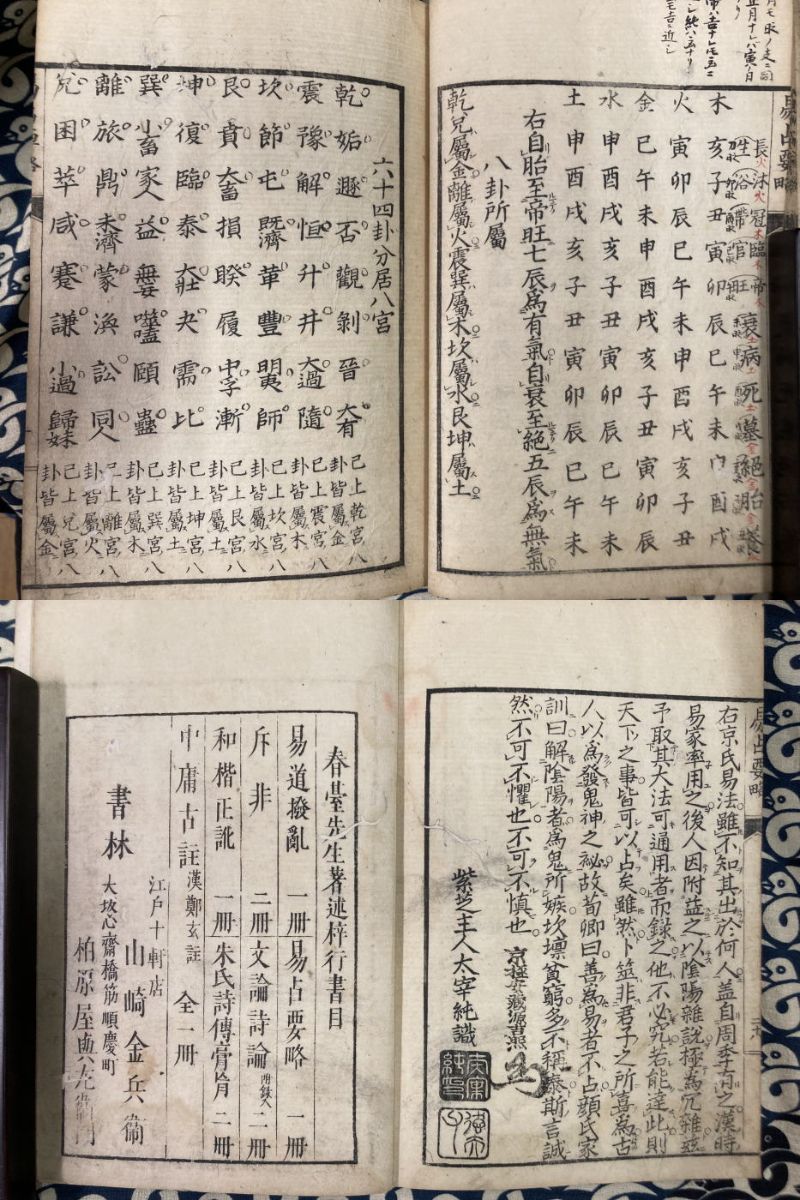 易占要略
長 沐 冠 臨 帝 衰 病 死 墓 絕 胎 養
生 浴 帶 官 旺
木 亥 子 丑 寅 卯 辰 巳 午 未 申 酉 戌
火 寅 卯 辰 巳 午 未 申 酉 戌 亥 子 丑
金 巳 午 未 申 酉 戌 亥 子 丑 寅 卯 辰
水 申 酉 戌 亥 子 丑 寅 卯 辰 巳 午 未
土 申 酉 戌 亥 子 丑 寅 卯 辰 巳 午 未
右自胎至帝旺七辰爲有氣自衰至絕五辰爲無氣
八卦所屬
乾兌屬金離屬火震巽屬木坎屬水艮坤屬土
六十四卦分居八宮
乾 姤 遯 否 觀 剝 晉 大有 已上乾宮八卦皆屬金
震 豫 解 恒 升 井 大過 隨 已上震宮八卦皆屬木
坎 節 屯 既濟 革 豐 明夷 師 已上坎宮八卦皆屬水
艮 賁 大畜 損 睽 履 中孚 漸 已上艮宮八卦皆屬土
坤 復 臨 泰 大壯 夬 需 比 已上坤宮八卦皆屬土
巽 小畜 家人 益 無妄 噬嗑 頤 蠱 已上巽宮八卦皆屬木
離 旅 鼎 未濟 蒙 渙 訟 同人 已上離宮八卦皆屬火
兌 困 萃 咸 蹇 謙 小過 歸妹 已上兌宮八卦皆屬金
易占要略
右京氏易法雖不知其出於何人蓋自周季有之漢時
易家率用之後人因附益之以陰陽雜說極爲冗雜茲
予取其大法可通用者而錄之他不必究若能達此則
天下之事皆可以占矣雖然卜筮非君子之所喜爲古
人以爲發鬼神之祕故荀卿曰善爲易者不占顔氏家
訓曰解陰陽者爲鬼所嫉坎壈貧窮多不稱泰斯言誠
然不可不懼也不可不慎也
紫芝主人太宰純識
春臺先生著述梓行書目
易道撥亂 一冊 易占要略 一冊
斥非 二冊 文論詩論 附錄入 二冊
和楷正訛 一冊 朱氏詩傳膏肓 二冊
中庸古註 漢鄭玄註 全一冊
江戶十軒店
書林 山﨑金兵衞
大坂心齋橋筋順慶町
柏原屋與左衞門